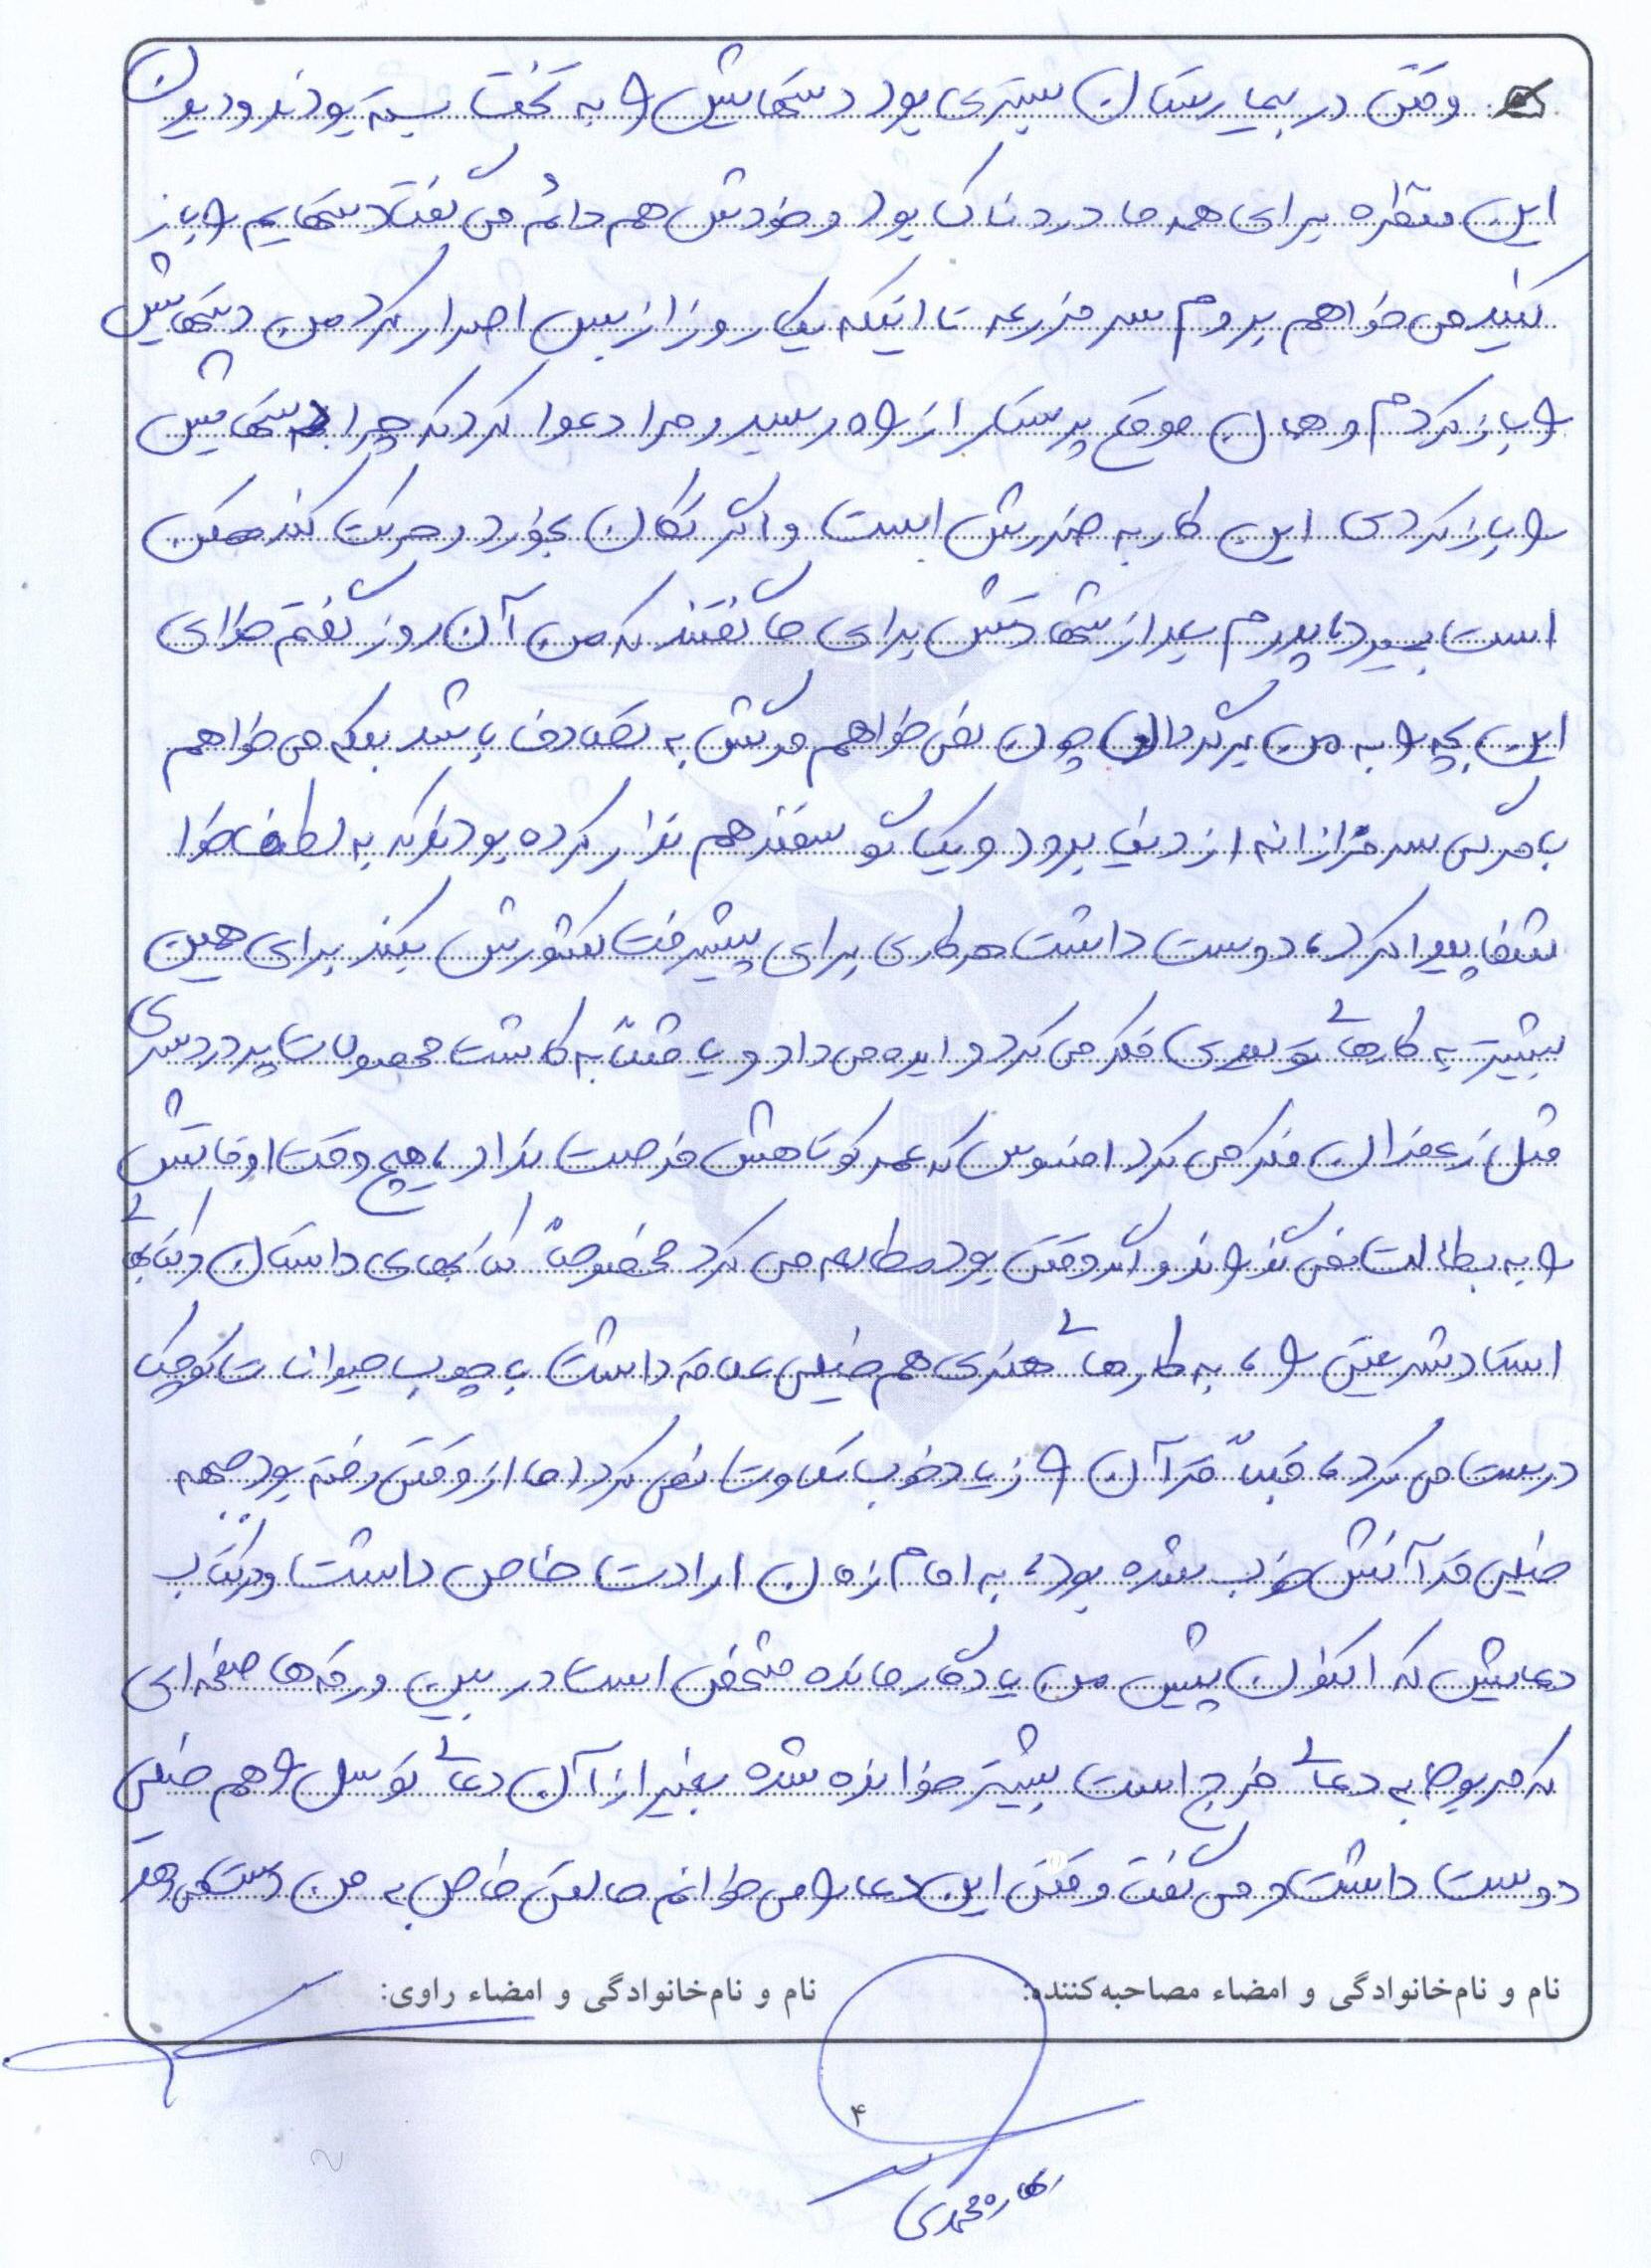 وقتی در بیمارستان بستری بود دستهایش را به تخت بسته بودند و دیدن
این منظره برای همه ما دردناک بود و خودش هم دائم می گفت دستهایم را باز
کنید می خواهم بروم سر مزرعه تا اینکه یک روز از بس اصرار کرد من دستهایش
را باز کردم و همان موقع پرستار از راه رسید و مرا دعوا کرد که چرا دستهایش
را باز کردی این کار به ضررش است و اگر تکان بخورد و حرکت کند ممکن
است بمیرد، پدرم بعد از شهادتش برای ما گفتند که من آن روز گفتم خدای
این بچه را به من برگردان چون نمی خواهم مرگش به تصادف باشد بلکه می خواهم
با مرگی سرفرازانه از دنیا برود و یک گوسفند هم نذر کرده بودند که به لطف خدا
شفا پیدا کرد، دوست داشت هر کاری برای پیشرفت کشورش بکند برای همین
بیشتر به کارهای تولیدی فکر می کرد و ایده می داد و یا مثلاً به کاشت محصولات پر دردسری
مثل زعفران فکر می کرد افسوس که عمر کوتاهش فرصت نداد، هیچ وقت اوقاتش
را به بطالت نمی گذراند و اگر وقتی بود مطالعه می کرد مخصوصاً کتابهای داستان و کتابهای
استاد شریعتی را، به کارهای هنری هم خیلی علاقه داشت با چوب حیوانات کوچک
درست می کرد، قبلاً قرآن را زیاد خوب تلاوت نمی کرد اما از وقتی رفته بود جبهه
خیلی قرآنش خوب شده بود، به امام زمان ارادت خاصی داشت و در کتاب
دعایش که اکنون پیش من یادگار مانده مشخص است در بین ورقه ها صفحه ای
که مربوط به دعای فرج است بیشتر خوانده شده بغیر از آن دعای توسل را هم خیلی
دوست داشت و می گفت وقتی این دعا را می خوانم حالتی خاص به من دست می دهد
نام و نام‌خانوادگی و امضاء مصاحبه‌کننده: نام و نام‌خانوادگی و امضاء راوی:
۴
محمدی